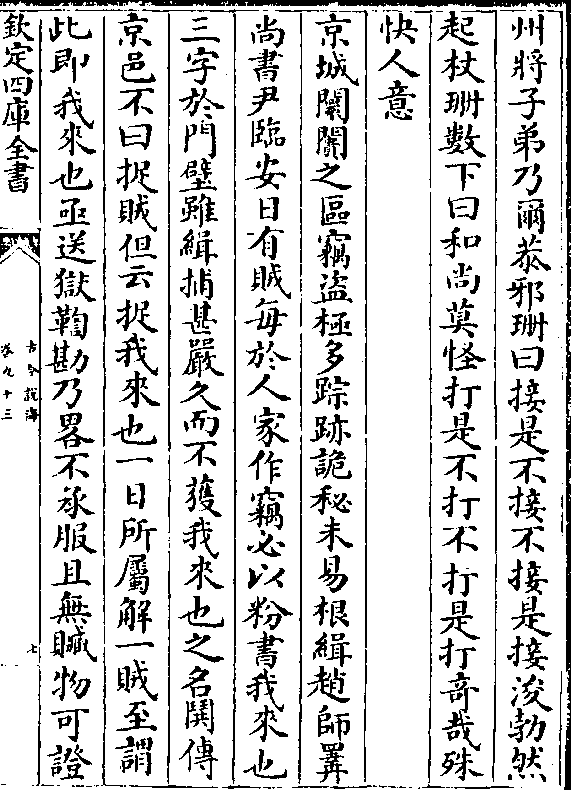 州將子弟乃爾恭邪珊曰接是不接不接是接浚勃然
起杖珊數下曰和尚莫怪打是不打不打是打奇哉殊
快人意
京城闤闠之區竊盗極多踪跡詭秘未易根緝趙師𢍰
尚書尹臨安日有賊每於人家作竊必以粉書我來也
三字於門壁雖緝捕甚嚴久而不獲我來也之名鬨傳
京邑不曰捉賊但云捉我來也一日所屬解一賊至謂
此即我來也亟送獄鞫勘乃畧不承服且無贓物可證
欽定四庫全書
古今說海
卷九十三
七